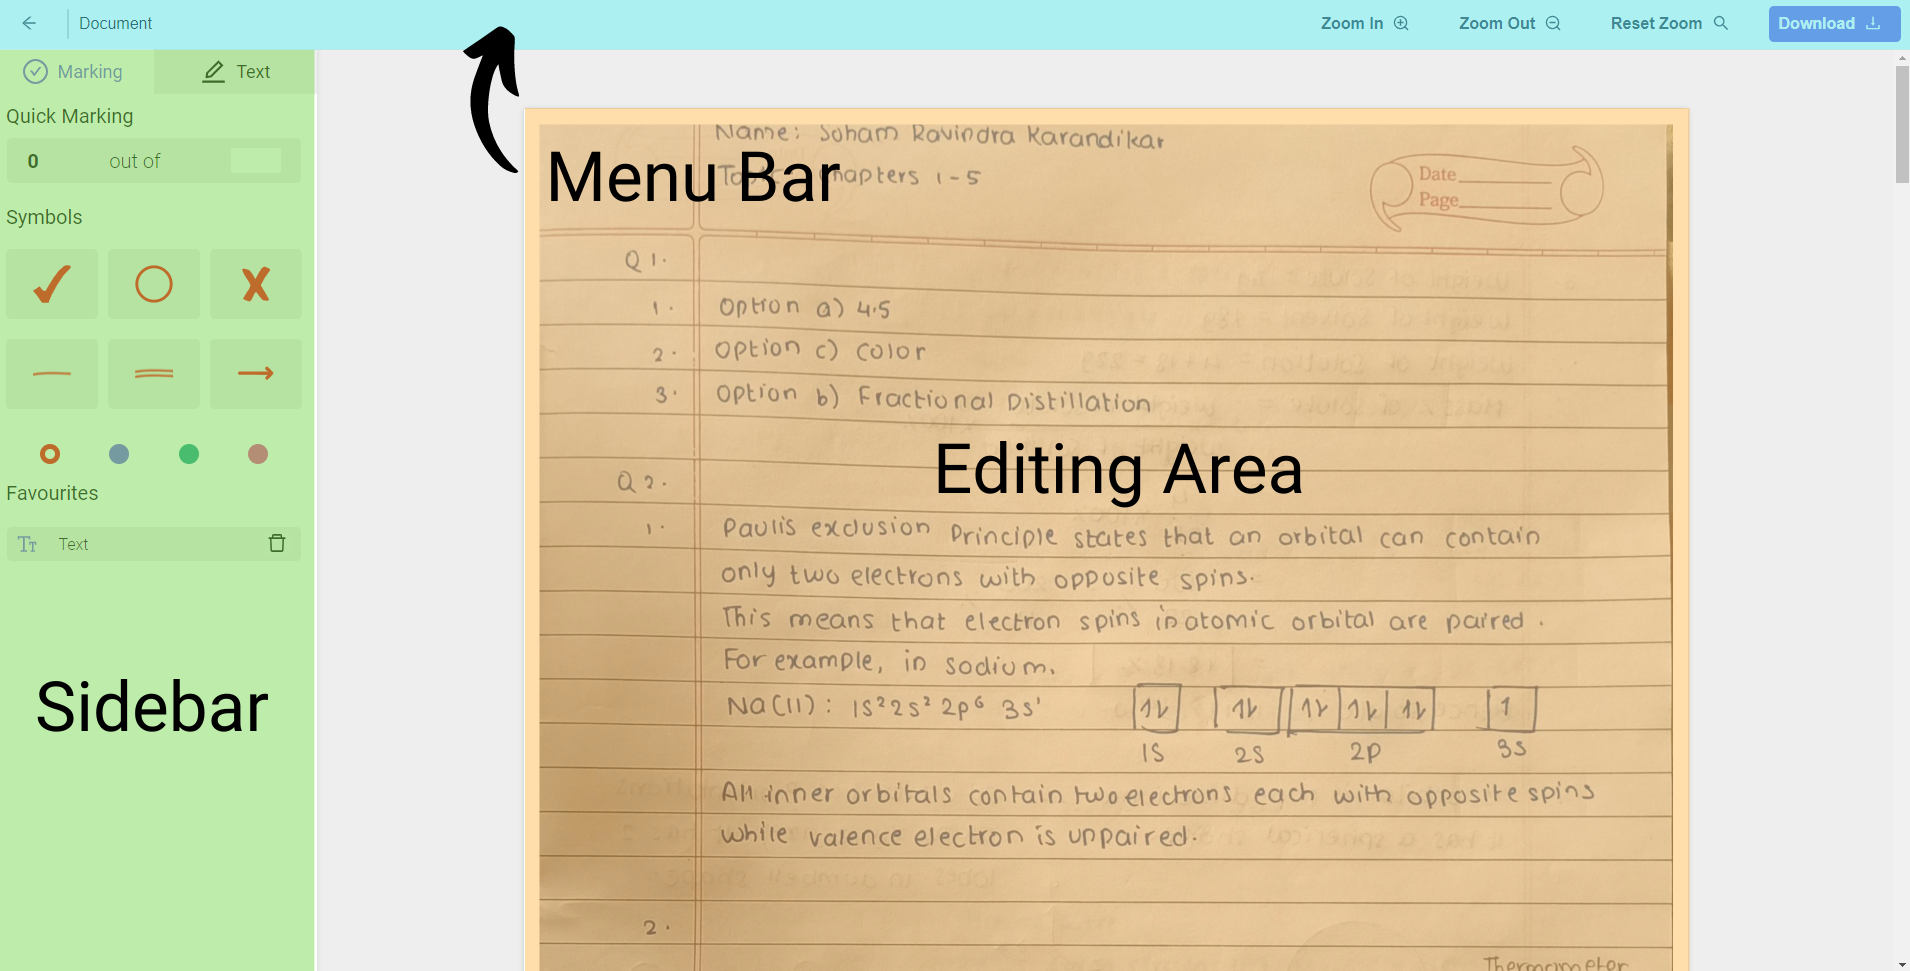 Document
Zoom In
Zoom Out
Reset Zoom
Download
Marking
Text
Quick Marking
0 out of
Symbols
Favourites
Text
Sidebar
Menu Bar
Editing Area
Name: Soham Ravindra Karandikar
Chapters 1-5
Date
Page
Q 1.
1. Option a) 4.5
2. Option c) Color
3. Option b) Fractional Distillation
Q 2.
1. Paulis exclusion Principle states that an orbital can contain
only two electrons with opposite spins.
This means that electron spins in atomic orbital are paired.
For example, in sodium.
Na(11): 1s² 2s² 2p⁶ 3s¹
1s 2s 2p 3s
All inner orbitals contain two electrons each with opposite spins
while valence electron is unpaired.
2.
Thermometer